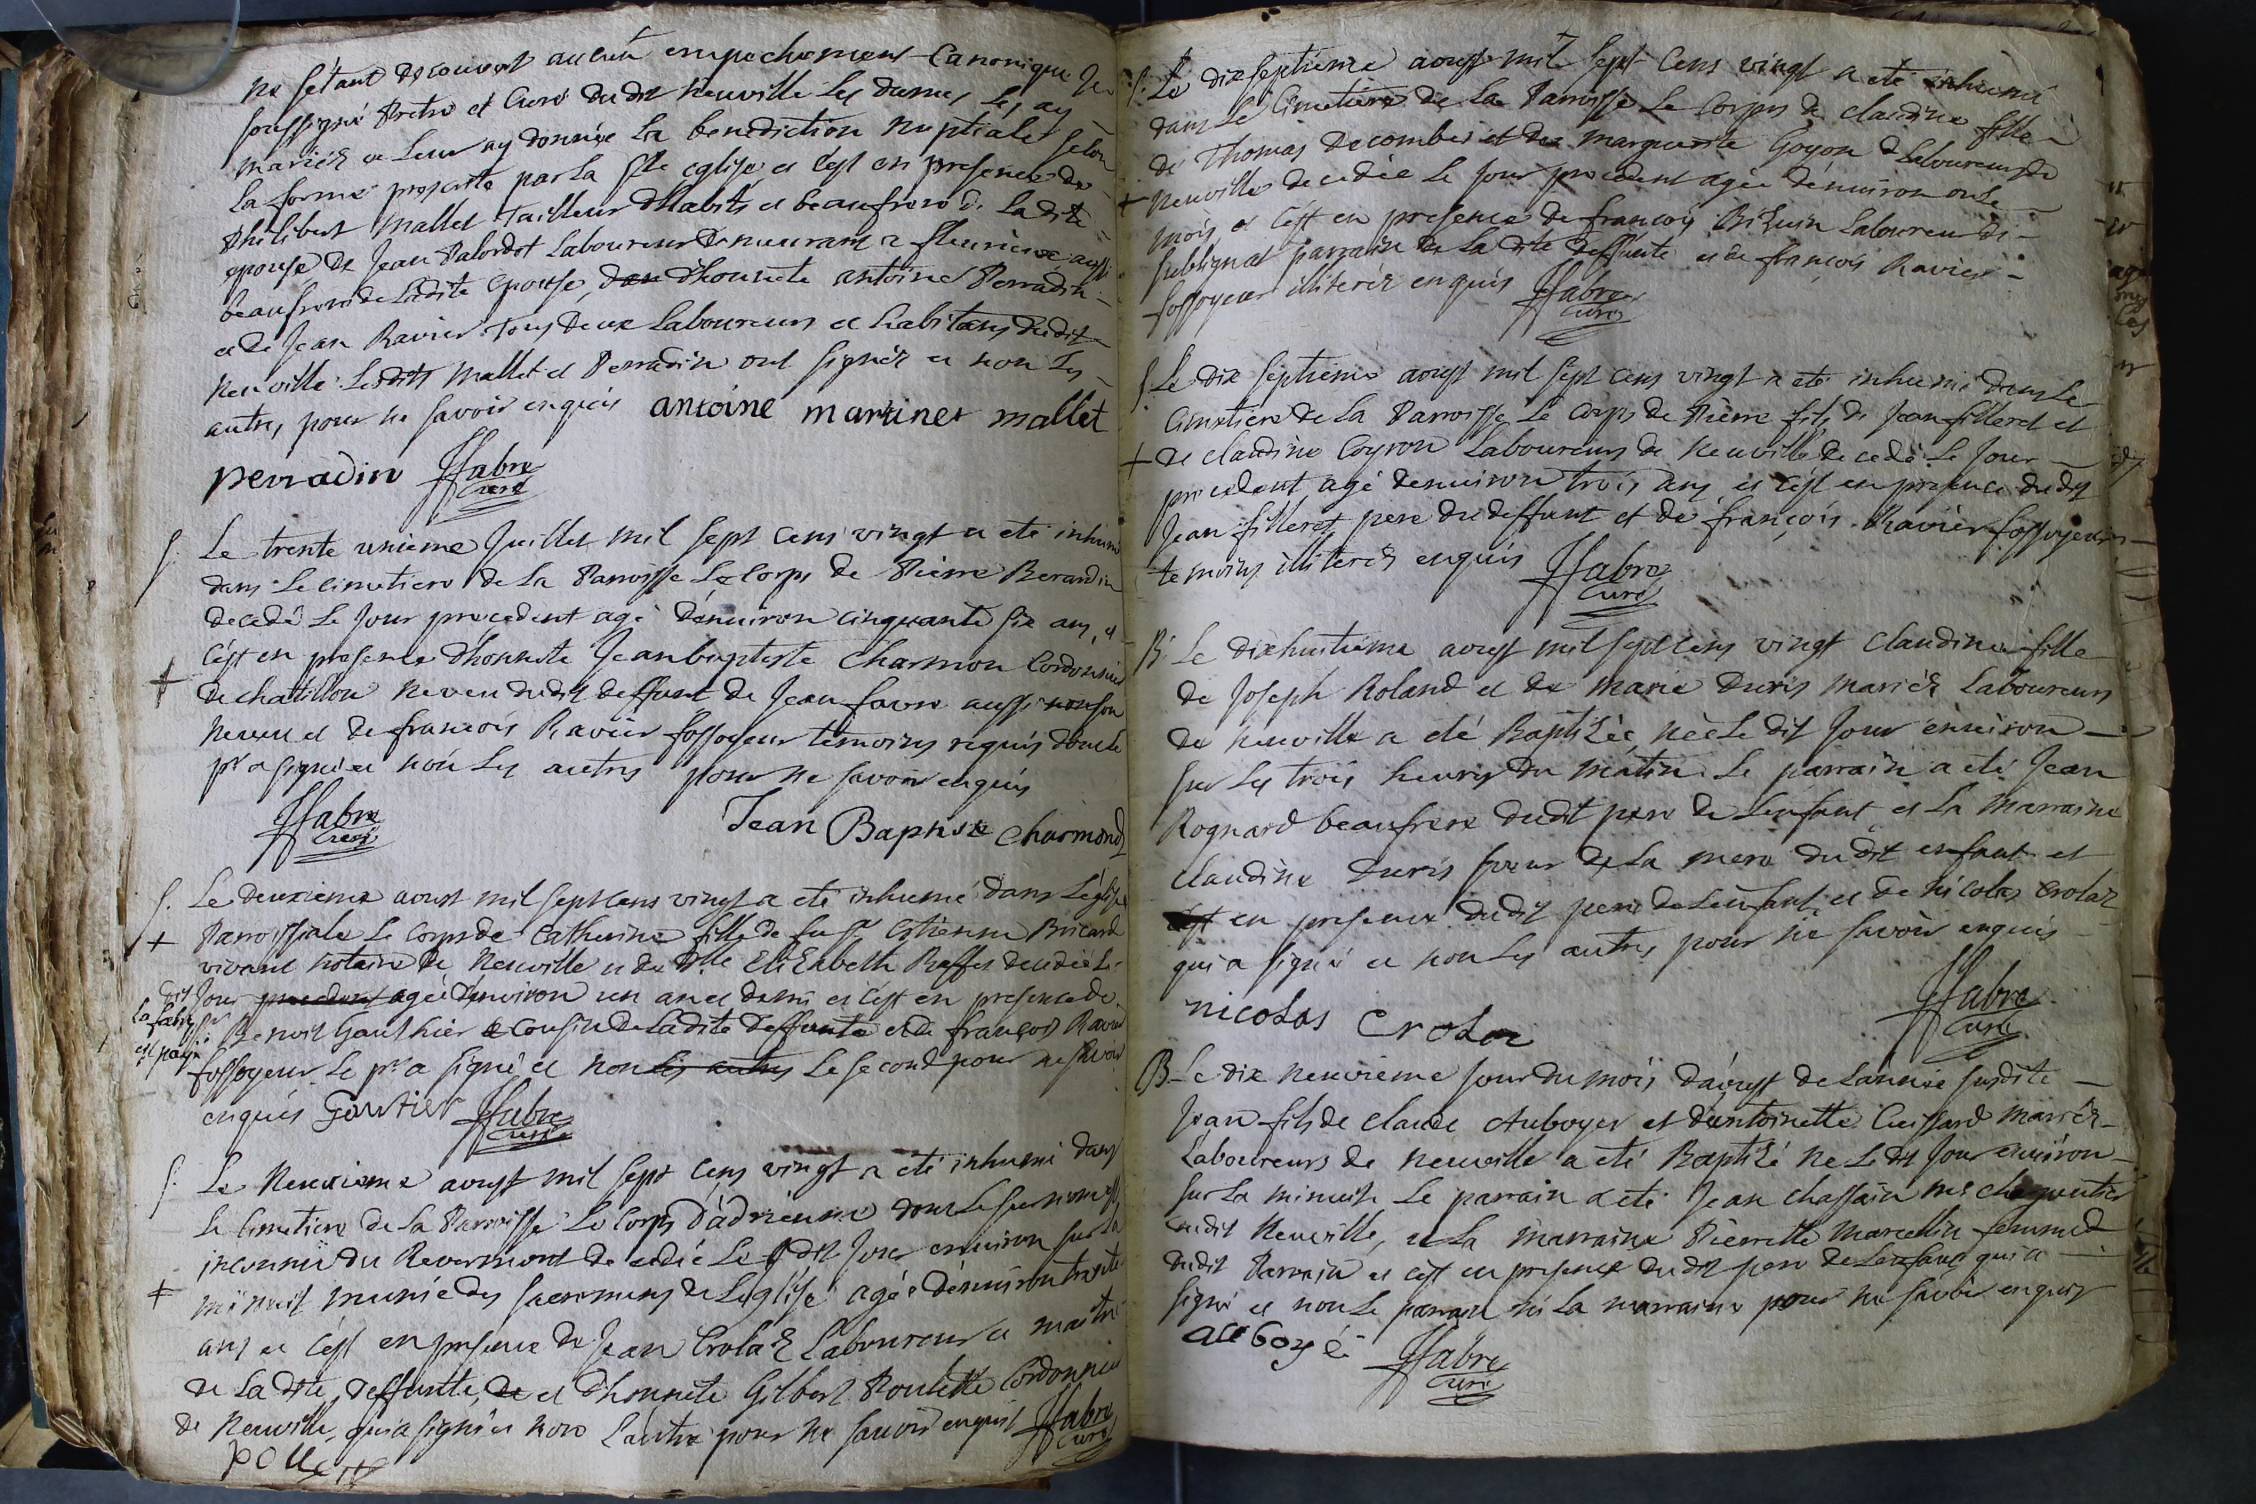 ne s'étant decouvert aucun empechement Canonique Je
soussigné Prêtre et Curé dudit Neuville les
mariés et leur ay donnée la benediction nuptiale selon
la forme par la Ste eglise et c'est en presence de
Philibert Mallet Tailleur d'habits et beaufrere de ladite
epouse de Jean Laboureur a fleurieux aussi
beaufrere de ladite epouse, d'honnete antoine Perradin
et de Jean Ravier tous deux Laboureurs et habitans dudit
Neuville. Lesdits Mallet et Perradin ont signés et non les
autres pour ne savoir enquis antoine martinet mallet
perradin Jfabre
Curé
S. Le trente unieme Juillet mil sept cens vingt a eté inhumé
dans le cimetiere de la Parroisse le Corps de Pierre Berardin
decedé le Jour precedent agé d'environ cinquante six ans, et
c'est en presence d'honnete Jean baptiste Charmon Cordonnier
de chatillon neveu dudit deffunt de Jean favre aussi son
neveu et de francois Ravier fossoyeur temoins requis dont le
pr a signé et non les autres pour ne savoir enquis
Jfabre
Curé
Jean Baptiste charmond
S. Le deuxieme aoust mil sept cens vingt a eté inhumé dans L'église
+ Parroissiale le corps de Catherine fille de feu Sr Estienne Bricard
vivant notaire de Neuville et de Dlle Elizabeth Raffet decedée le
dit Jour precedent agée d'environ un an et demi et c'est en presence de
la fabr. est payé
Sr Benoit Gauthier Cousin de ladite deffunte et de françois Ravier
fossoyeur Le pr a signé et non les autres le second pour ne savoir
enquis Gautier Jfabre
Curé
S. Le Neuvieme aoust mil sept cens vingt a eté inhumé dans
le Cimetiere de la Parroisse le Corps d'adrienne dont le surnom est
inconnu du Revermont decedée le dit Jour environ sur la
+ minuit munie des sacremens de L'eglise agée d'environ trente
ans et c'est en presence de Jean Crolaz Laboureur et maitre
de la dite deffunte, de et d'honnete Gilbert Poulette Cordonnier
de Neuville qui a signé et non L'autre pour ne savoir enquis Jfabre
Curé
S. Le dix septieme aoust mil sept cens vingt a eté inhumé
dans le Cimetiere de la Parroisse le Corps de claudine fille
de Thomas Decombes et de marguerite Goyon Laboureurs de
+ Neuville decedée le Jour precedent agée d'environ onse
mois et c'est en presence de francois Laboureur de
parrain de la dite deffunte et de françois Ravier
fossoyeur illiterés enquis Jfabre
Curé
S. Le dix septieme aoust mil sept cens vingt a eté inhumé dans le
Cimetiere de la Parroisse le Corps de Pierre fils de Jean filleret et
+ de claudine Coyron Laboureurs de Neuville decedé le Jour
precedent agé d'environ trois ans et c'est en presence dudit
Jean filleret pere du deffunt et de françois Ravier fossoyeur
temoins illiterés enquis Jfabre
Curé
B. Le dixhuitieme aoust mil sept cens vingt Claudine fille
de Joseph Roland et de Marie Duris mariés Laboureurs
de Neuville a eté Baptizée née le dit Jour environ
sur les trois heures du matin. Le parrain a eté Jean
Rognard beaufrere dudit pere de L'enfant et La Marraine
Claudine Duris soeur de la mere dudit enfant et
c'est en presence dudit pere de L'enfant et de Nicolas Crolaz
qui a signé et non les autres pour ne savoir enquis
nicolas crola
Jfabre
Curé
B. Le dix neuvieme Jour du mois d'aoust de L'année susdite
Jean fils de claude Auboyer et d'antoinette Cuissard mariés
Laboureurs de Neuville a eté Baptizé né le dit Jour environ
sur La minuit. Le parrain a eté Jean chassain me charpentier
dudit Neuville, et La marraine Pierrette Marcellin femme
dudit Parrain et c'est en presence dudit pere de L'enfant qui a
signé et non le parrain ni La marraine pour ne savoir enquis
auboyé Jfabre
Curé